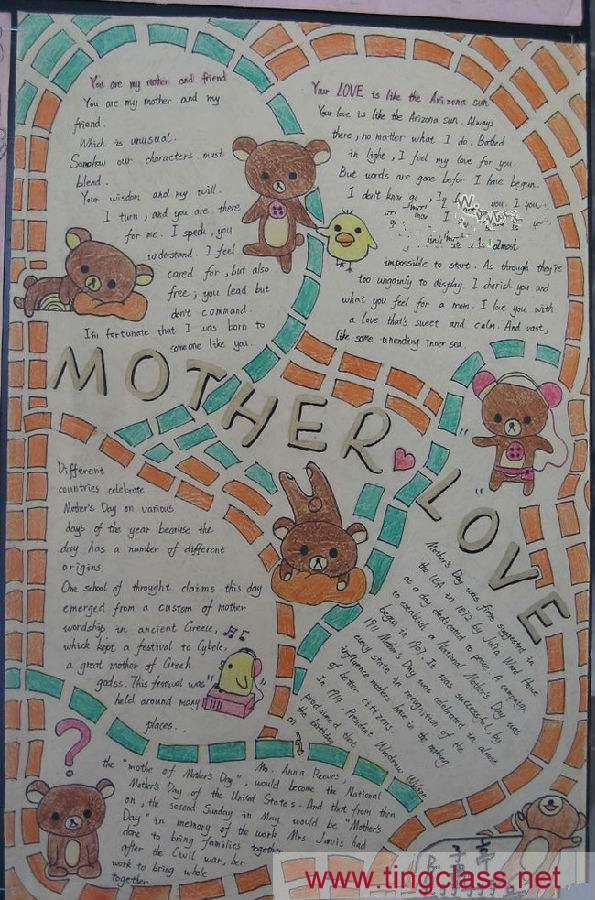 You are my mother and friend
You are my mother and my
friend.
Which is unusual.
Somehow our characters must
blend.
Your wisdom and my will.
I turn, and you are there
for me. I speak, you
understand. I feel
cared for, but also
free; you lead but
don't command.
I'm fortunate that I was born to
someone like you.
Your LOVE is like the Arizona sun
Your love is like the Arizona sun. Always
there, no matter what I do.
in light, I feel my love for you
But words are gone befor I have begun.
I don't know
almost
impossible to start. As through they're
too ungainly to display. I cherish you and
what you feel for a mom. I love you with
a love that's sweet and calm. And vast,
Like some unending inner sea.
MOTHER LOVE
Different
countries celebrete
Mother's Day on various
days of the year because the
day has a number of different
origins.
One school of throught claims this day
emerged from a custom of mother
wordship in ancient Greece,
which kept a festival to Cybele,
a great mother of Greek
gadss. This festival was
held around many
places.
Mother's Day was first suggested in
the USA in 1872 by Julia Ward Howe
as a day dedicated to peace. A campaign
to establish a National Mother's Day was
began in 1907. It was successful, by
1911 Mother's Day was celebrated in almost
every state in recognition of the
influence mothers have in the making
of better citizens
In 1914 President Woodrow Wilson
proclaimed that
the birthday
on
the "mothe of Mother's Day", Ms. Anna Reeves, would become the National
Mother's Day of the United States. And that from then
on, the second Sunday in May would be "Mother's
Day" in memory of the work Mrs Jarvis had
done to bring families together
after the Civil war, her
work to bring whole
together
www.tingclass.net